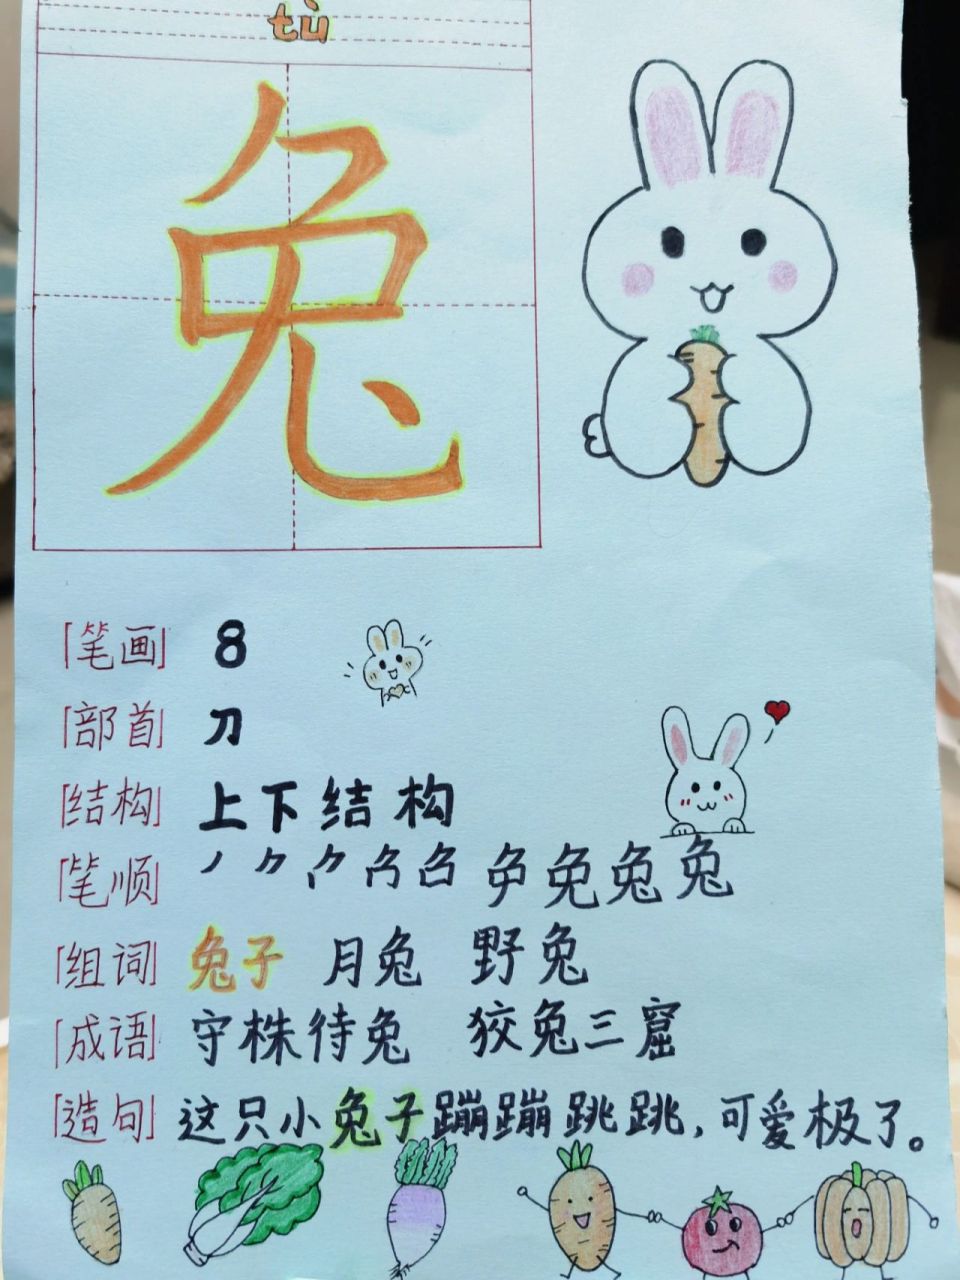 tù
兔
[笔画] 8
[部首] 刀
[结构] 上下结构
[笔顺] 丿 𠂊
[组词] 兔子 月兔 野兔
[成语] 守株待兔 狡兔三窟
[造句] 这只小兔子蹦蹦跳跳，可爱极了。